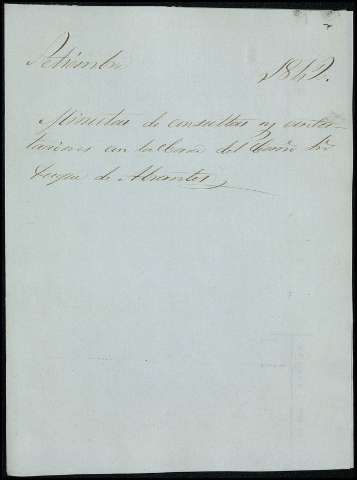 Setiembre 1842.
Minutas de consultas y contes-
taciones con la Casa del Exmo Sr
Duque de Abrantes